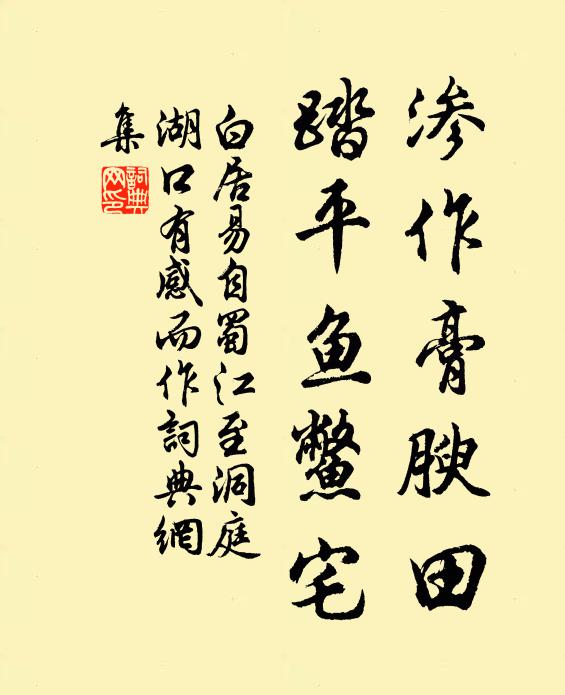 渗作膏腴田
踏平鱼鳖宅
白居易自蜀江至洞庭
湖口有感而作詞典網
集
詞典
网印